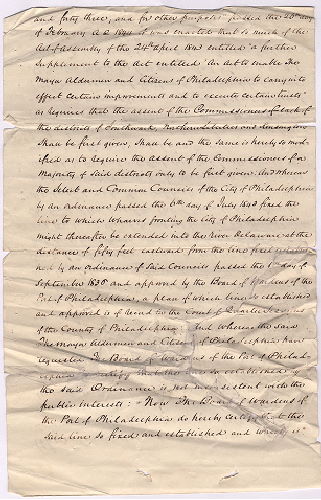 and forty three, and for other purposes" passed the 26th day
of February A D 1844 it was enacted that so much of the
Act of Assembly of the 24th April 1843 entitled "a further
Supplement to the Act entitled 'An Act to enable The
Mayor Aldermen and Citizens of Philadelphia to carry into
effect certain improvements and to execute certain trusts'
as requires that the assent of the Commissioners of each of
the districts of Southwark, Northern Liberties and Kensington
Shall be first given, Shall be and the Same is hereby so mod-
ified as to require the assent of the Commissioners of a
Majority of Said districts only to be first given. And whereas
the Select and Common Councils of the City of Philadelphia
by an ordinance passed the day of July 1844 fixed the
line to which wharves fronting the City of Philadelphia
might thereafter be extended into the River Delaware at the
distance of fifty feet eastward from the line fixed
by an Ordinance of Said Councils passed the day of
September 1836 and approved by the Board of Wardens of the
Port of Philadelphia, a plan of which line so established
and approved is of record in the Court of Quarter Sessions
of the County of Philadelphia: And Whereas the said
The Mayor Aldermen and Citizens of Philadelphia have
requested The Board of Wardens of the Port of Philad-
elphia to certify that the line so established by
the said Ordinance is not inconsistent with the
public interests: Now The Board of Wardens of
the Port of Philadelphia do hereby certify that the
said line so fixed and established and which is